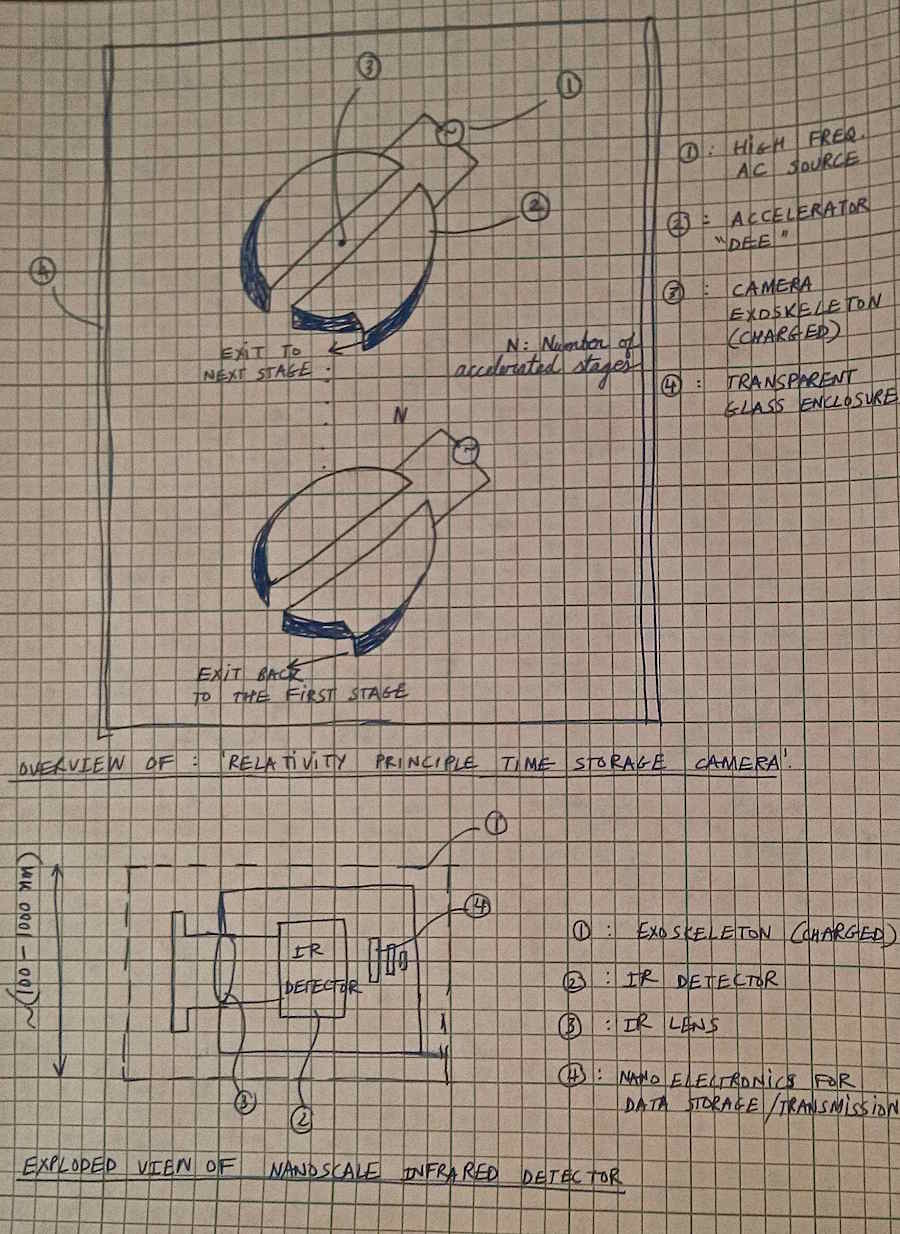 ③
①
②
④
①: HIGH FREQ.
AC SOURCE
②: ACCELERATOR
"DEE"
③: CAMERA
EXOSKELETON
(CHARGED)
④: TRANSPARENT
GLASS ENCLOSURE
EXIT TO
NEXT STAGE:
N: Number of
accelerated stages
N
EXIT BACK
TO THE FIRST STAGE
OVERVIEW OF: 'RELATIVITY PRINCIPLE TIME STORAGE CAMERA'.
①
④
~(100 - 1000 nm)
IR
DETECTOR
③
②
①: EXOSKELETON (CHARGED)
②: IR DETECTOR
③: IR LENS
④: NANO ELECTRONICS FOR
DATA STORAGE/TRANSMISSION
EXPLODED VIEW OF NANOSCALE INFRARED DETECTOR